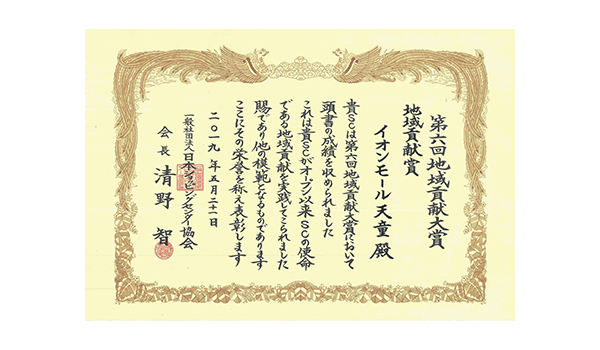 第六回地域貢献大賞
地域貢献賞
イオンモール天童 殿
貴SCは第六回地域貢献大賞において
頭書の成績を収められました
これは貴SCがオープン以来SCの使命
である地域貢献を実践してこられました
賜であり他の模範となるものであります
ここにその栄誉を称え表彰します
二〇一九年五月二十一日
一般社団法人日本ショッピングセンター協会
会長 清野 智